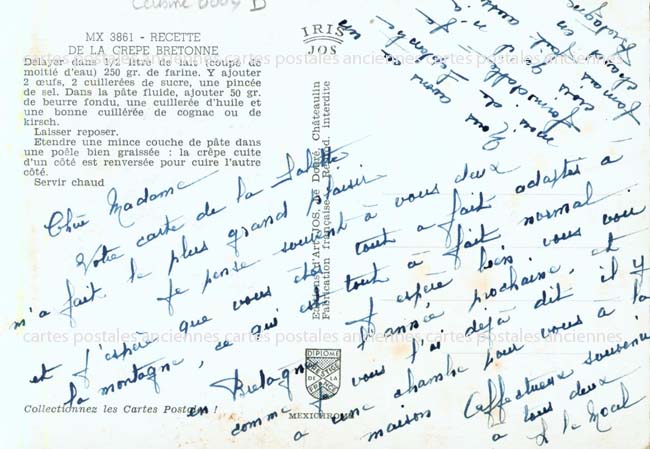 Cuisine 0004 D
MX 3861 - RECETTE
DE LA CREPE BRETONNE
Délayer dans 1/2 litre de lait (coupé de
moitié d'eau) 250 gr. de farine. Y ajouter
2 œufs, 2 cuillerées de sucre, une pincée
de sel. Dans la pâte fluide, ajouter 50 gr.
de beurre fondu, une cuillerée d'huile et
une bonne cuillérée de cognac ou de
kirsch.
Laisser reposer.
Etendre une mince couche de pâte dans
une poêle bien graissée : la crêpe cuite
d'un côté est renversée pour cuire l'autre
côté.
Servir chaud
IRIS
JOS
Editions d'Art JOS, Le Doaré, Châteaulin
Fabrication française - Reprod. interdite
Chère Madame
Votre carte de la Salette
m'a fait le plus grand plaisir
Je pense souvent à vous deux
et j'espère que vous êtes tout à fait adaptés à
la montagne, ce qui est tout à fait normal
J'espère bien vous voir
en Bretagne l'année prochaine, et
comme je vous l'ai déjà dit il y
a une chambre pour vous à la
maison
Affectueux souvenir
à tous deux
Nous avons un
mois de
formidable
Jamais n'a
ciel fait aussi
chaud en
Bretagne
DIPLOME
PRESTIGE
DE LA
FRANCE
MEXICHROME
Collectionnez les Cartes Postales !
cartes postales anciennes cartes postales anciennes cartes postales anciennes
cartes postales anciennes cartes postales anciennes cartes postales anciennes